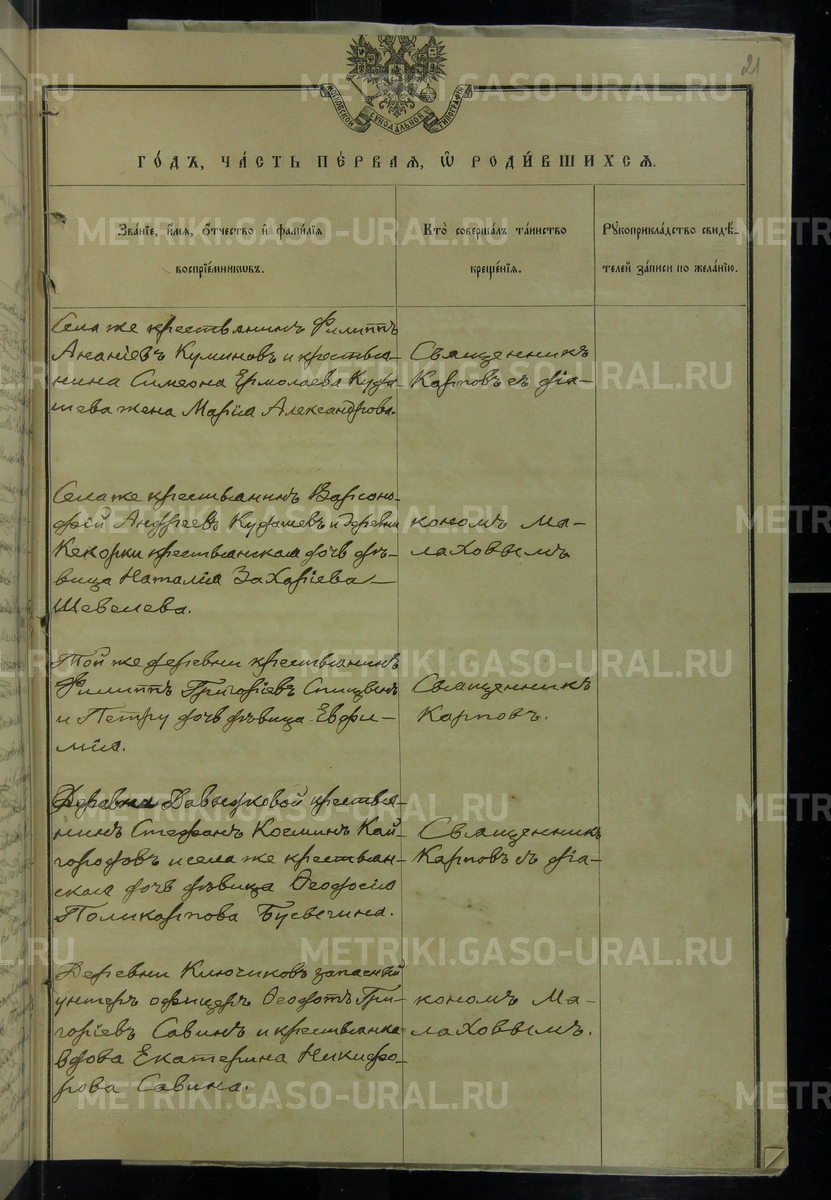 21
МОСКОВСКОЙ СѴНОДАЛЬНОЙ ТИПОГРАФІИ
ГО́ДЪ, ЧА́СТЬ ПЕ́РВАЯ, Ѡ҆ РОДИ́ВШИХСЯ.
Зва́нїе, и҆́мя, ѻ҆́тчество и҆ фами́лїя
воспрїе́мникѡвъ.
Кто̀ соверша́лъ та́инство
креще́нїя.
Рꙋкоприкла́дство свидѣ́-
телей за́писи по жела́нїю.
Села же крестьянинъ Филиппъ
Ананіевъ Куминовъ и крестья-
нина Симеона Ермолаева Куда-
шева жена Марія Александрова.
Священникъ
Карповъ съ діа-
Села же крестьянинъ Варсоно-
фій Андреевъ Кудашевъ и деревни
Кекорки крестьянская дочь дѣ-
вица Наталія Захаріева
Шевелева.
кономъ Ма-
лаховымъ
Той же деревни крестьянинъ
Филиппъ Григоріевъ
и Петру дочь дѣвица Евфи-
мія.
Священникъ
Карповъ.
Деревни Давыдковой крестья-
нинъ Стефанъ Косминъ Кай-
городовъ и села же крестьян-
ская дочь дѣвица Ѳеодосія
Поликарпова Бусвечина.
Священникъ
Карповъ съ діа-
Деревни Ключиковъ запасный
унтеръ офицеръ Ѳеодотъ Гри-
горіевъ Савинъ и крестьянка
вдова Екатерина Никифо-
рова Савина.
кономъ Ма-
лаховымъ.
METRIKI.GASO-URAL.RU